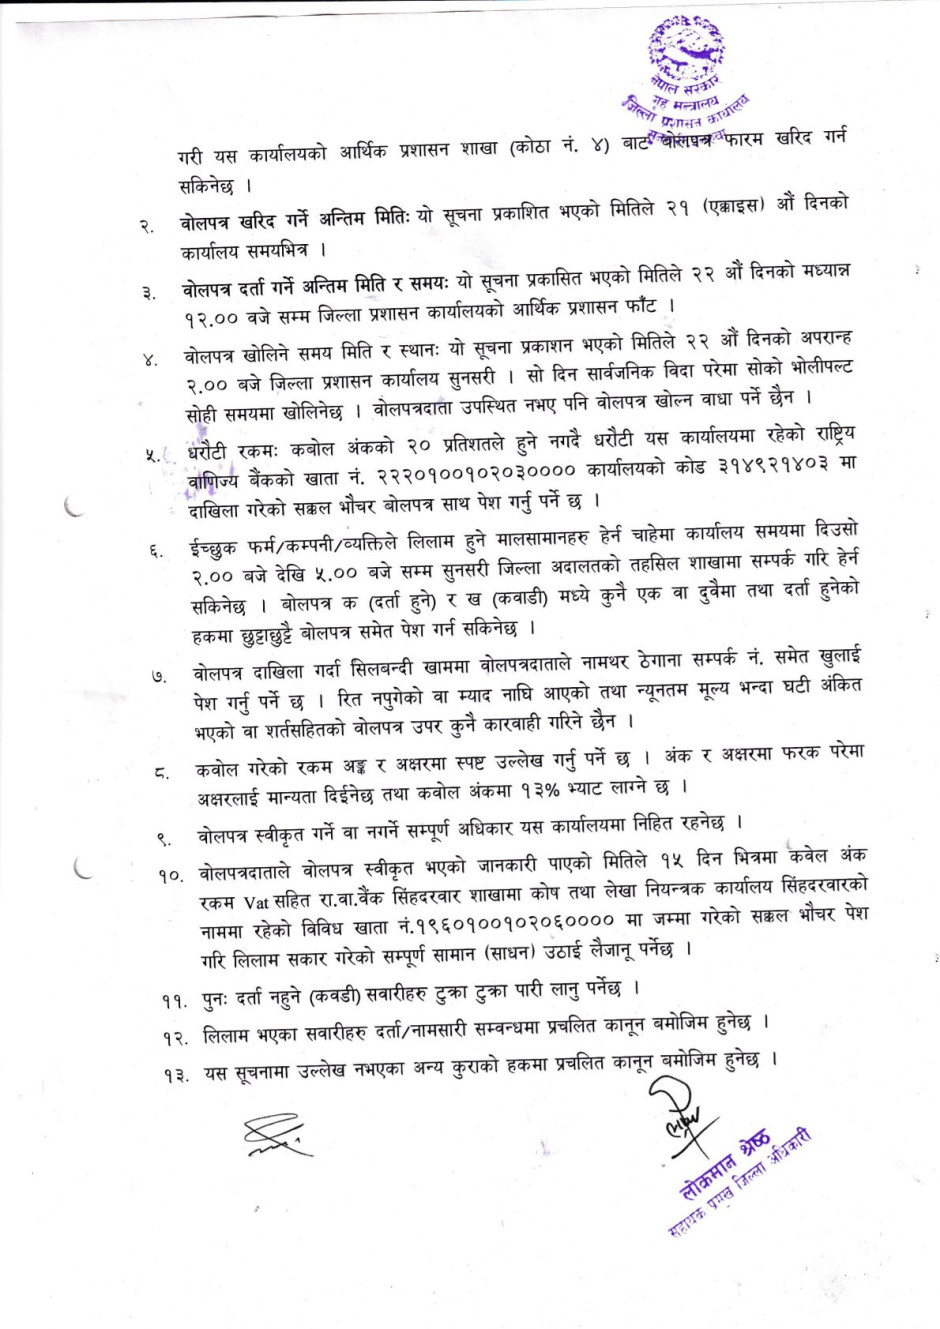 नेपाल सरकार
गृह मन्त्रालय
जिल्ला प्रशासन कार्यालय
गरी यस कार्यालयको आर्थिक प्रशासन शाखा (कोठा नं. ४) बाट बोलपत्र फारम खरिद गर्न
सकिनेछ ।
२. वोलपत्र खरिद गर्ने अन्तिम मितिः यो सूचना प्रकाशित भएको मितिले २१ (एक्काइस) औं दिनको
कार्यालय समयभित्र ।
३. वोलपत्र दर्ता गर्ने अन्तिम मिति र समयः यो सूचना प्रकासित भएको मितिले २२ औं दिनको मध्यान्न
१२.०० वजे सम्म जिल्ला प्रशासन कार्यालयको आर्थिक प्रशासन फाँट ।
४. वोलपत्र खोलिने समय मिति र स्थानः यो सूचना प्रकाशन भएको मितिले २२ औं दिनको अपरान्ह
२.०० बजे जिल्ला प्रशासन कार्यालय सुनसरी । सो दिन सार्वजनिक विदा परेमा सोको भोलीपल्ट
सोही समयमा खोलिनेछ । वोलपत्रदाता उपस्थित नभए पनि वोलपत्र खोल्न वाधा पर्ने छैन ।
५. धरौटी रकमः कबोल अंकको २० प्रतिशतले हुने नगदै धरौटी यस कार्यालयमा रहेको राष्ट्रिय
वाणिज्य बैंकको खाता नं. २२२०१००१०२०३०००० कार्यालयको कोड ३१४९२१४०३ मा
दाखिला गरेको सक्कल भौचर बोलपत्र साथ पेश गर्नु पर्ने छ ।
६. ईच्छुक फर्म/कम्पनी/व्यक्तिले लिलाम हुने मालसामानहरु हेर्न चाहेमा कार्यालय समयमा दिउसो
२.०० बजे देखि ५.०० बजे सम्म सुनसरी जिल्ला अदालतको तहसिल शाखामा सम्पर्क गरि हेर्न
सकिनेछ । बोलपत्र क (दर्ता हुने) र ख (कवाडी) मध्ये कुनै एक वा दुवैमा तथा दर्ता हुनेको
हकमा छुट्टाछुट्टै बोलपत्र समेत पेश गर्न सकिनेछ ।
७. वोलपत्र दाखिला गर्दा सिलबन्दी खाममा वोलपत्रदाताले नामथर ठेगाना सम्पर्क नं. समेत खुलाई
पेश गर्नु पर्ने छ । रित नपुगेको वा म्याद नाघि आएको तथा न्यूनतम मूल्य भन्दा घटी अंकित
भएको वा शर्तसहितको वोलपत्र उपर कुनै कारवाही गरिने छैन ।
८. कवोल गरेको रकम अङ्क र अक्षरमा स्पष्ट उल्लेख गर्नु पर्ने छ । अंक र अक्षरमा फरक परेमा
अक्षरलाई मान्यता दिईनेछ तथा कवोल अंकमा १३% भ्याट लाग्ने छ ।
९. वोलपत्र स्वीकृत गर्ने वा नगर्ने सम्पूर्ण अधिकार यस कार्यालयमा निहित रहनेछ ।
१०. वोलपत्रदाताले वोलपत्र स्वीकृत भएको जानकारी पाएको मितिले १५ दिन भित्रमा कवेल अंक
रकम Vat सहित रा.वा.वैंक सिंहदरवार शाखामा कोष तथा लेखा नियन्त्रक कार्यालय सिंहदरवारको
नाममा रहेको विविध खाता नं.१९६०१००१०२०६०००० मा जम्मा गरेको सक्कल भौचर पेश
गरि लिलाम सकार गरेको सम्पूर्ण सामान (साधन) उठाई लैजानू पर्नेछ ।
११. पुनः दर्ता नहुने (कवडी) सवारीहरु टुक्रा टुक्रा पारी लानु पर्नेछ ।
१२. लिलाम भएका सवारीहरु दर्ता/नामसारी सम्वन्धमा प्रचलित कानून बमोजिम हुनेछ ।
१३. यस सूचनामा उल्लेख नभएका अन्य कुराको हकमा प्रचलित कानून बमोजिम हुनेछ ।
लोकमान श्रेष्ठ
सहायक प्रमुख जिल्ला अधिकारी